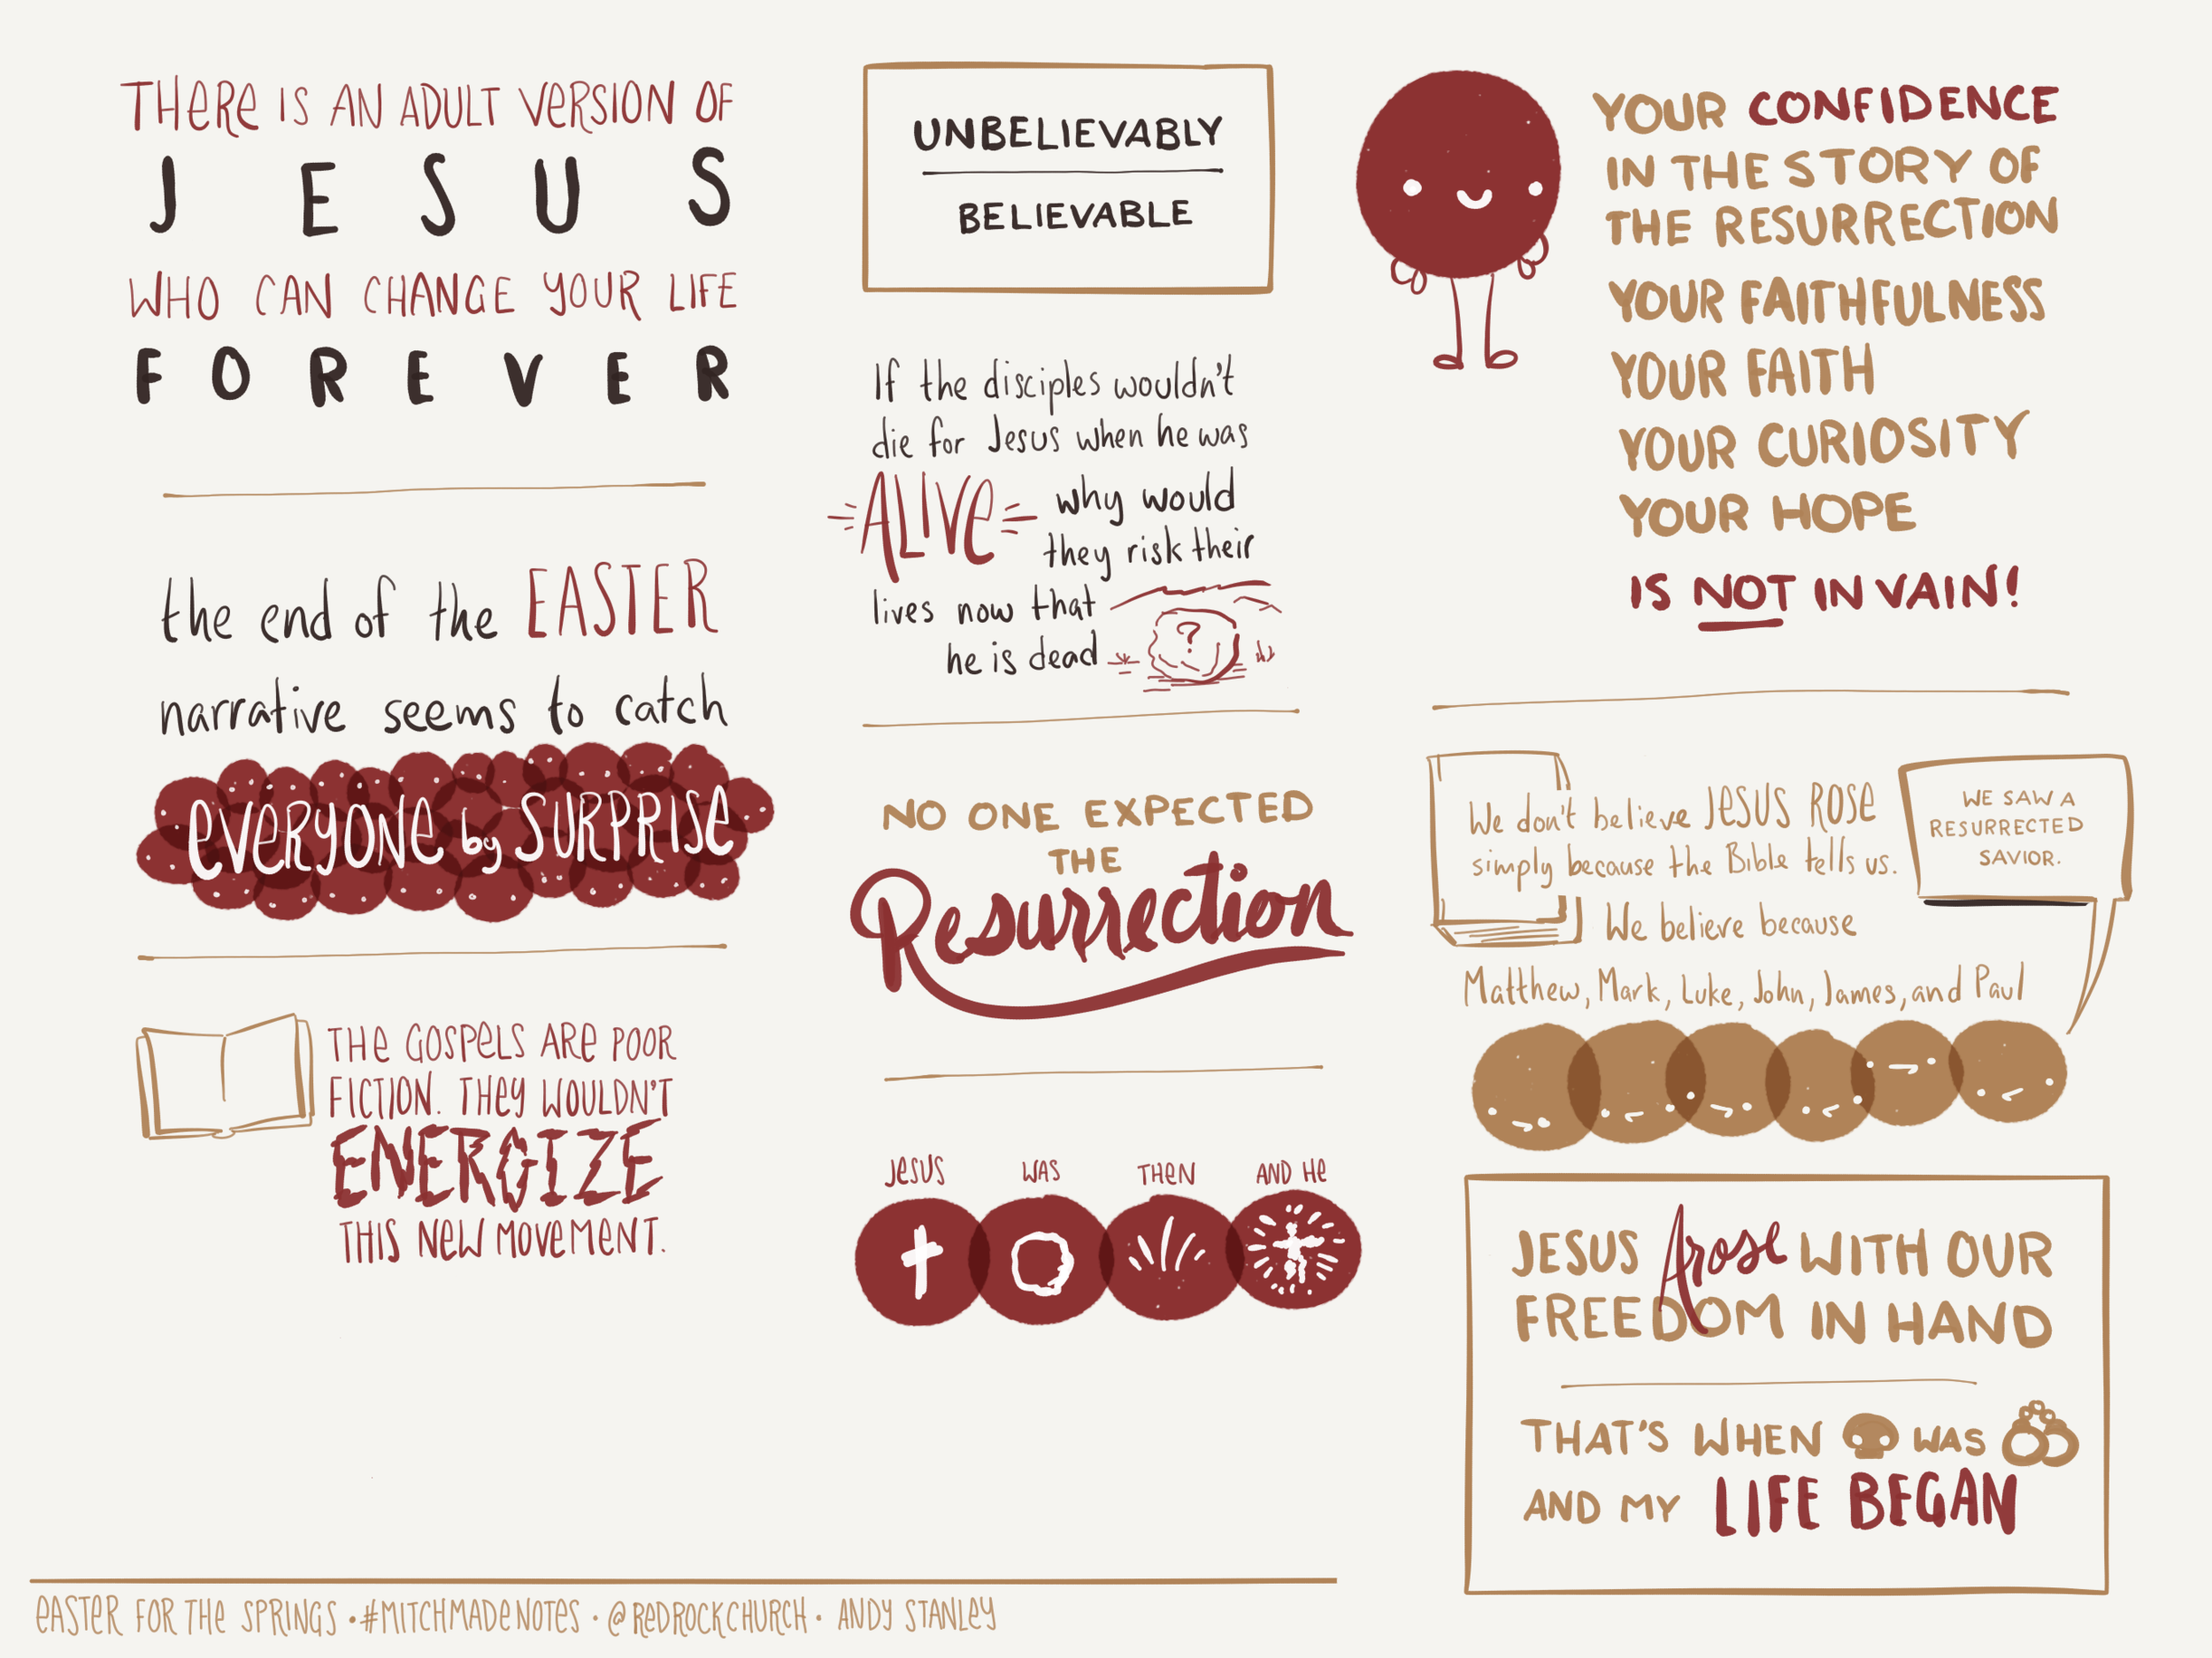 THERE IS AN ADULT VERSION OF
JESUS
WHO CAN CHANGE YOUR LIFE
FOREVER
the end of the EASTER
narrative seems to catch
EVERYONE by SURPRISE
THE GOSPELS ARE POOR
FICTION. THEY WOULDN'T
ENERGIZE
THIS NEW MOVEMENT.
UNBELIEVABLY
BELIEVABLE
If the disciples wouldn't
die for Jesus when he was
ALIVE why would
they risk their
lives now that
he is dead
?
NO ONE EXPECTED
THE
Resurrection
JESUS WAS THEN AND HE
YOUR CONFIDENCE
IN THE STORY OF
THE RESURRECTION
YOUR FAITHFULNESS
YOUR FAITH
YOUR CURIOSITY
YOUR HOPE
IS NOT IN VAIN!
We don't believe JESUS ROSE
simply because the Bible tells us.
We believe because
Matthew, Mark, Luke, John, James, and Paul
WE SAW A
RESURRECTED
SAVIOR.
JESUS Arose WITH OUR
FREEDOM IN HAND
THAT'S WHEN WAS
AND MY LIFE BEGAN
EASTER FOR THE SPRINGS • #MITCHMADENOTES • @REDROCKCHURCH • ANDY STANLEY